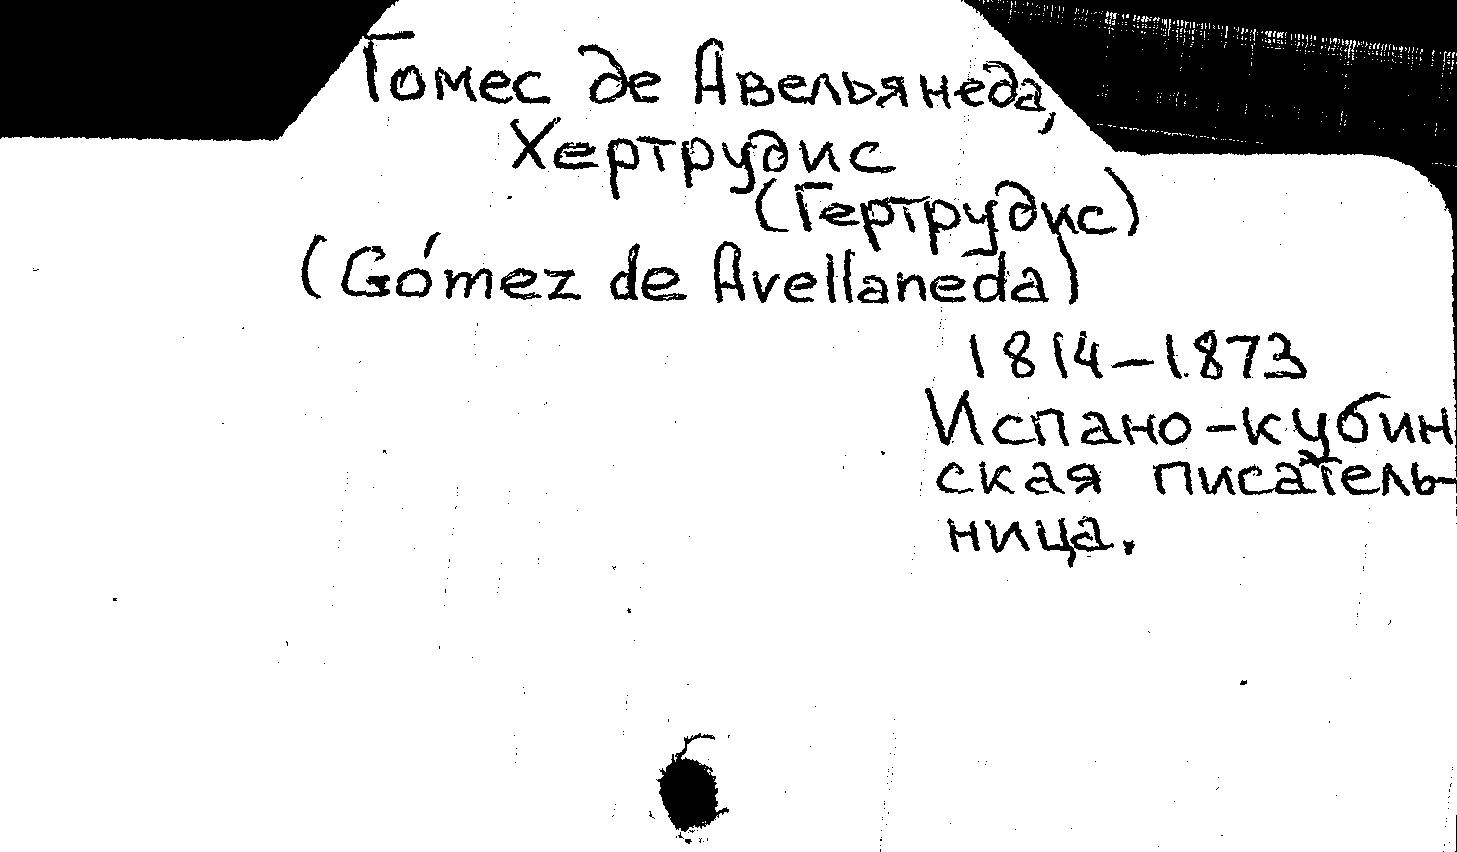 Гомес де Авельянеда,
Хертрудис
(Гертрудис)
(Gómez de Avellaneda)
1814-1873
Испано-кубин
ская писатель-
ница.